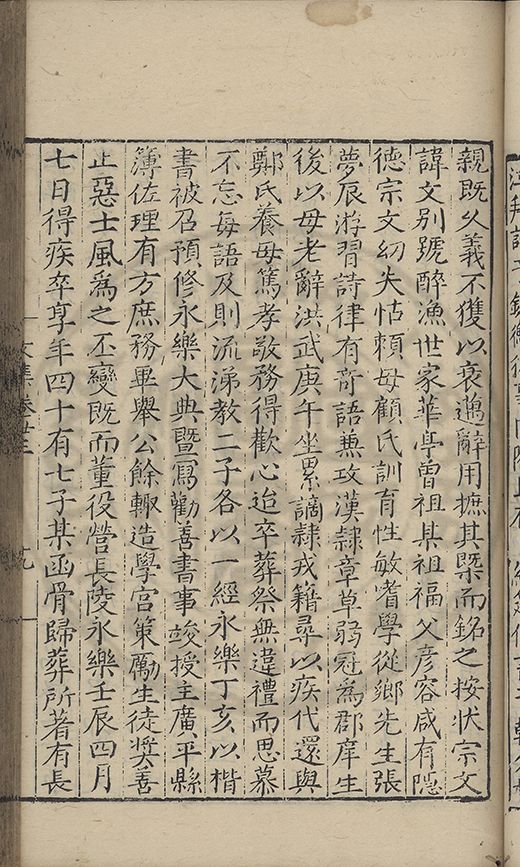 親既久義不獲以衰邁辭用摭其槩而銘之按狀宗文
諱文別號醉漁世家華亭曾祖某祖福父彥容咸有隱
德宗文幼失怙頼母顧氏訓育性敏嗜學從鄉先生張
夢辰游習詩律有奇語兼攻漢隷章草弱冠爲郡庠生
後以母老辭洪武庚午坐累謫隷戎籍尋以疾代還與
鄭氏養母篤孝敬務得歡心迨卒葬祭無違禮而思慕
不忘每語及則流涕教二子各以一經永樂丁亥以楷
書被召預修永樂大典暨寫勸善書事竣授主廣平縣
簿佐理有方庶務畢舉公餘輙造學宫策勵生徒奬善
止惡士風爲之丕變既而董役營長陵永樂壬辰四月
七日得疾卒享年四十有七子某函骨歸葬所著有長
文集卷廿三
九